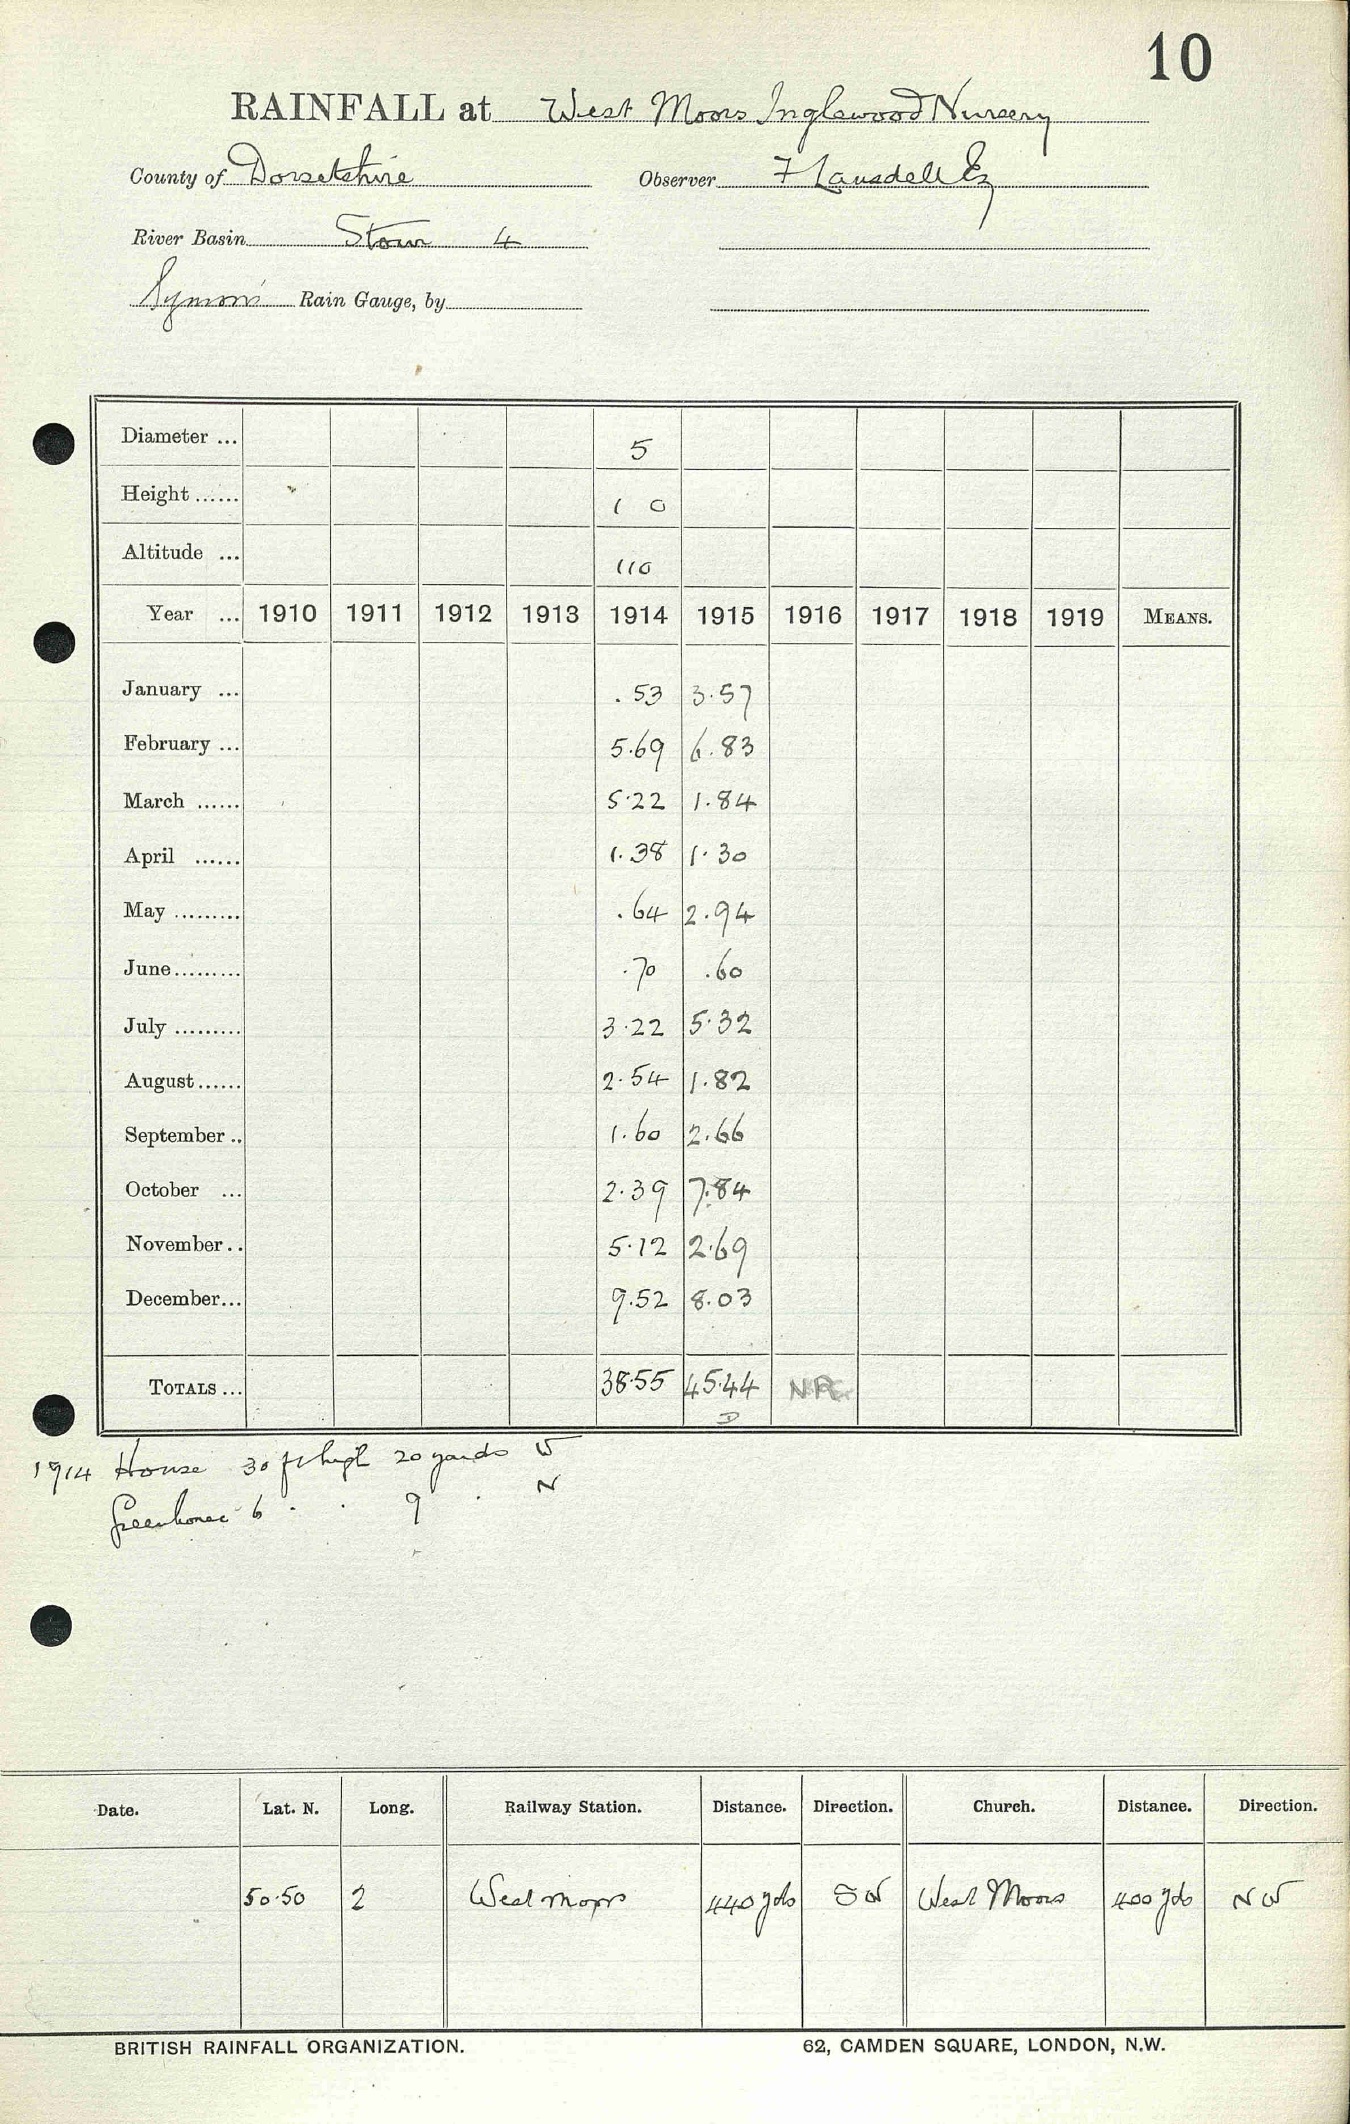 10
RAINFALL at West Moors Inglewood Nursery
County of Dorsetshire Observer F Lansdell Esq
River Basin Stour 4
Symons Rain Gauge, by
Diameter ... 5
Height ...... 1 0
Altitude ... 110
Year ... 1910 1911 1912 1913 1914 1915 1916 1917 1918 1919 MEANS.
January ... .53 3.57
February ... 5.69 6.83
March ...... 5.22 1.84
April ...... 1.38 1.30
May ......... .64 2.94
June ......... .70 .60
July ......... 3.22 5.32
August ...... 2.54 1.82
September .. 1.60 2.66
October ... 2.39 7.84
November .. 5.12 2.69
December ... 9.52 8.03
TOTALS ... 38.55 45.44 NR
D
1914 House 30 ft high 20 yards W
Greenhouse 6 . . 9 . N
Date. Lat. N. Long. Railway Station. Distance. Direction. Church. Distance. Direction.
50.50 2 West Moors 440 yds SW West Moors 400 yds NW
BRITISH RAINFALL ORGANIZATION. 62, CAMDEN SQUARE, LONDON, N.W.